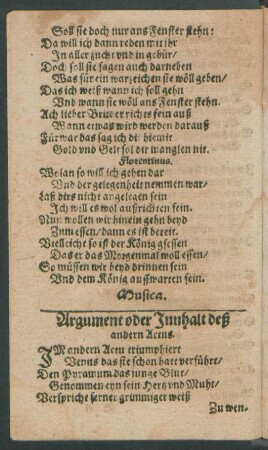 Soll sie doch nur ans Fenster stehn:
Da will ich dann reden mit ihr
In aller zucht vnd in gebür/
Doch soll sie sagen auch darneben
Was für ein warzeichen sie wöll geben/
Das ich weiß wann ich soll gehn
Vnd wann sie wöll ans Fenster stehn.
Ach lieber Bruder richts fein auß
Wann etwas wird werden darauß
Fürwar das sag ich dir hiemit
Gold vnd Gelt sol dir manglen nit.
Florentinus.
Wolan so will ich gehen dar
Vnd der gelegenheit nemmen war/
Laß dirs nicht angelegen sein
Ich will es wol außrichten fein.
Nun wollen wir hinein gehn beyd
Zum essen/ dann es ist bereit.
Vielleicht so ist der König gsessen
Das er das Morgenmal woll essen/
So müssen wir beyd drinnen sein
Vnd dem König auffwarten fein.
Musica.
Argument oder Innhalt deß
andern Actus.
IM andern Actu triumphiert
Venus das sie schon hatt verführt/
Den Pyramum das junge Blut/
Genommen eyn sein Hertz vnd Muht/
Verspricht ferner grümmiger weiß
Zu wen-